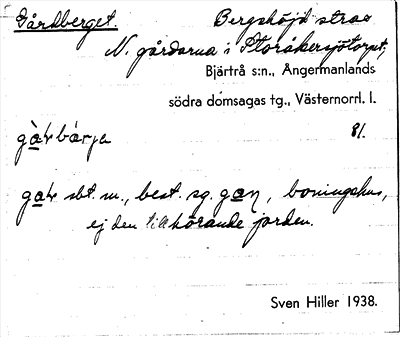 Gårdberget. Bergshöjd strax
N. gårdarna i Storåkersjötorpet,
Bjärtrå s:n., Ångermanlands
södra domsagas tg., Västernorrl. l.
81.
sbt. m., best. sg. , boningshus,
ej den tillhörande jorden.
Sven Hiller 1938.